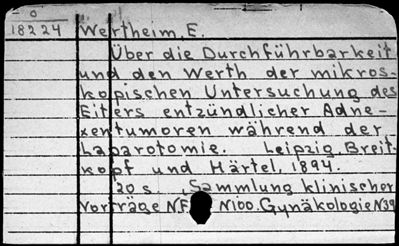 o
18224 Wertheim, E.
Über die Durchführbarkeit
und den Werth der mikros-
kopischen Untersuchung des
Eiters entzündlicher Adne-
xentumoren während der
Laparotomie. Leipzig, Breit-
kopf und Härtel, 1894.
20 s. Sammlung klinischer
Vorträge N.F. N100. Gynäkologie N39